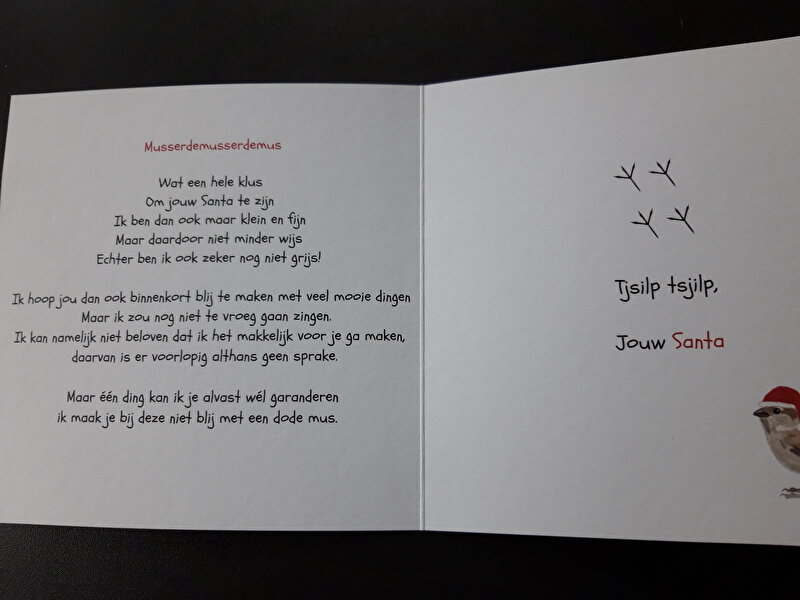 Musserdemusserdemus
Wat een hele klus
Om jouw Santa te zijn
Ik ben dan ook maar klein en fijn
Maar daardoor niet minder wijs
Echter ben ik ook zeker nog niet grijs!
Ik hoop jou dan ook binnenkort blij te maken met veel mooie dingen
Maar ik zou nog niet te vroeg gaan zingen.
Ik kan namelijk niet beloven dat ik het makkelijk voor je ga maken,
daarvan is er voorlopig althans geen sprake.
Maar één ding kan ik je alvast wél garanderen
ik maak je bij deze niet blij met een dode mus.
Tjsilp tsjilp,
Jouw Santa